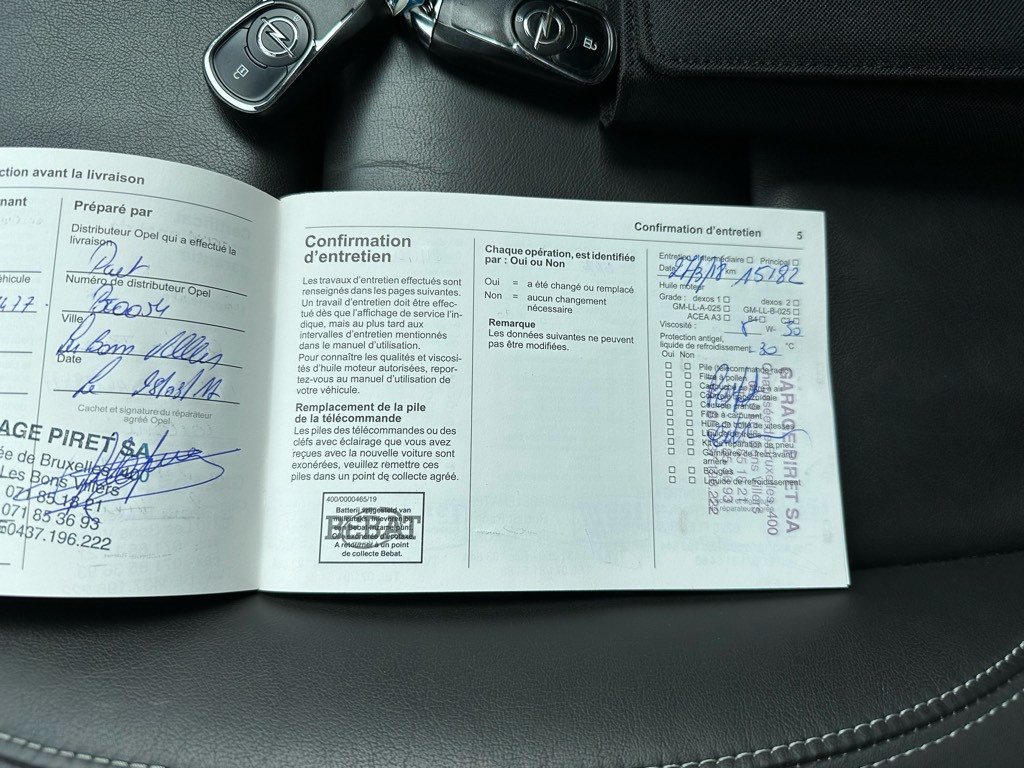 ction avant la livraison
nant
éhicule
Préparé par
Distributeur Opel qui a effectué la
livraison
Piret
Numéro de distributeur Opel
Ville
Les Bons Villers
Date
le 28/03/17
Cachet et signature du réparateur
agréé Opel
AGE PIRET SA
ée de Bruxelles, 400
Les Bons Villers
071 85 18 21
071 85 36 93
0437.196.222
Confirmation d'entretien 5
Confirmation
d'entretien
Les travaux d'entretien effectués sont
renseignés dans les pages suivantes.
Un travail d'entretien doit être effec-
tué dès que l'affichage de service l'in-
dique, mais au plus tard aux
intervalles d'entretien mentionnés
dans le manuel d'utilisation.
Pour connaître les qualités et viscosi-
tés d'huile moteur autorisées, repor-
tez-vous au manuel d'utilisation de
votre véhicule.
Remplacement de la pile
de la télécommande
Les piles des télécommandes ou des
cléfs avec éclairage que vous avez
reçues avec la nouvelle voiture sont
exonérées, veuillez remettre ces
piles dans un point de collecte agréé.
400/0000465/19
BEBAT
A retourner à un point
de collecte Bebat.
Chaque opération, est identifiée
par : Oui ou Non
Oui = a été changé ou remplacé
Non = aucun changement
nécessaire
Remarque
Les données suivantes ne peuvent
pas être modifiées.
Entretien intermédiaire Principal
Date km 15182
Huile moteur
Grade : dexos 1 dexos 2
GM-LL-A-025 GM-LL-B-025
ACEA A3 B4 C3
Viscosité : W- 30
Protection antigel,
liquide de refroidissement - 30 °C
Oui Non
Pile (télécommande radio)
Filtre à pollen
Cartouche de filtre à air
Courroie trapézoïdale
Courroie crantée
Filtre à carburant
Huile de boîte de vitesses
Liquide de frein
Kit de réparation de pneu
Garnitures de frein avant
arrière
Bougies
Liquide de refroidissement
GARAGE PIRET SA
Chaussée de Bruxelles, 400